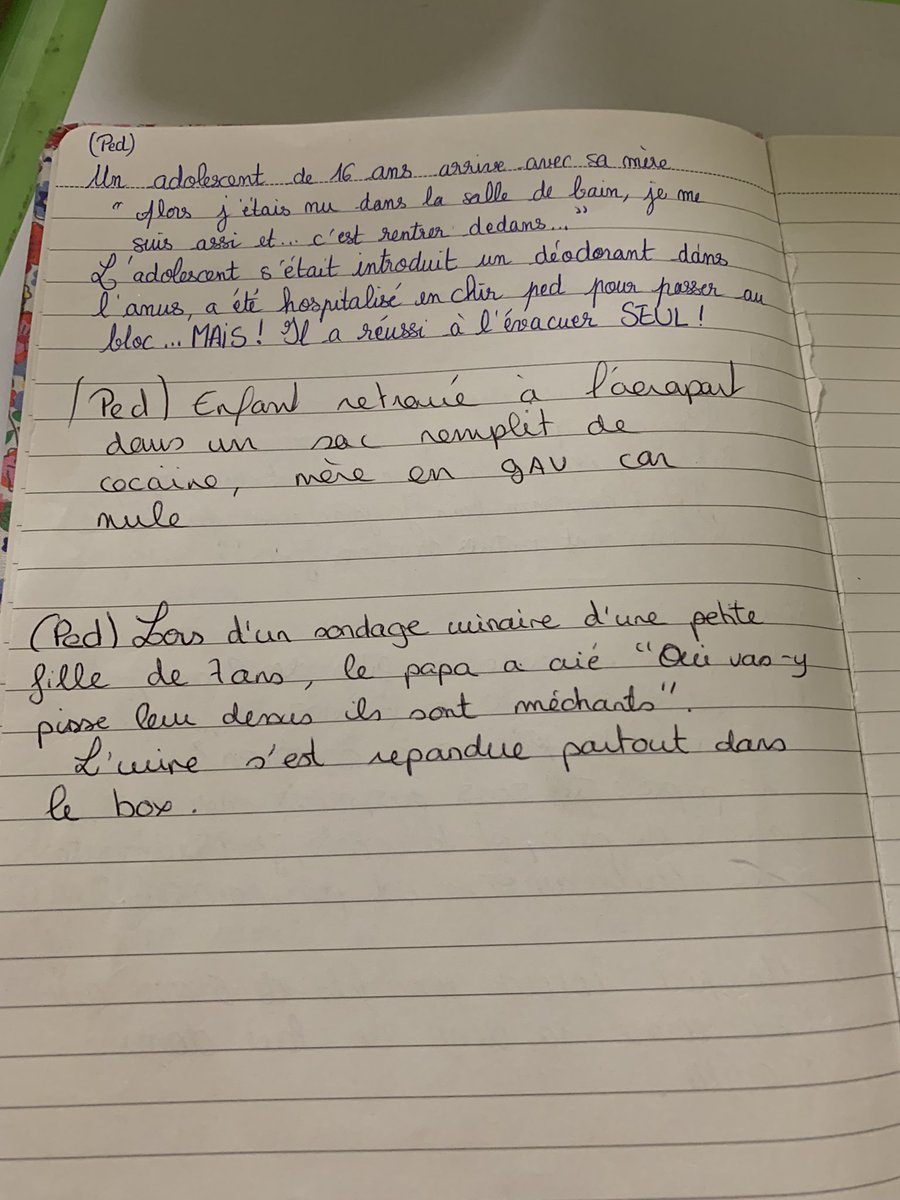 (Ped)
Un adolescent de 16 ans arrive avec sa mère
" Alors j'étais nu dans la salle de bain, je me
suis assi et... c'est rentrer dedans... "
L'adolescent s'était introduit un déodorant dans
l'anus, a été hospitalisé en chir ped pour passer au
bloc... MAIS! Il a réussi à l'évacuer SEUL!
(Ped) Enfant retrouvé à l'aéroport
dans un sac remplit de
cocaïne, mère en GAV car
mule
(Ped) Lors d'un sondage urinaire d'une petite
fille de 7ans, le papa a crié "Oui vas-y
pisse leur dessus ils sont méchants".
L'urine s'est repandue partout dans
le box.